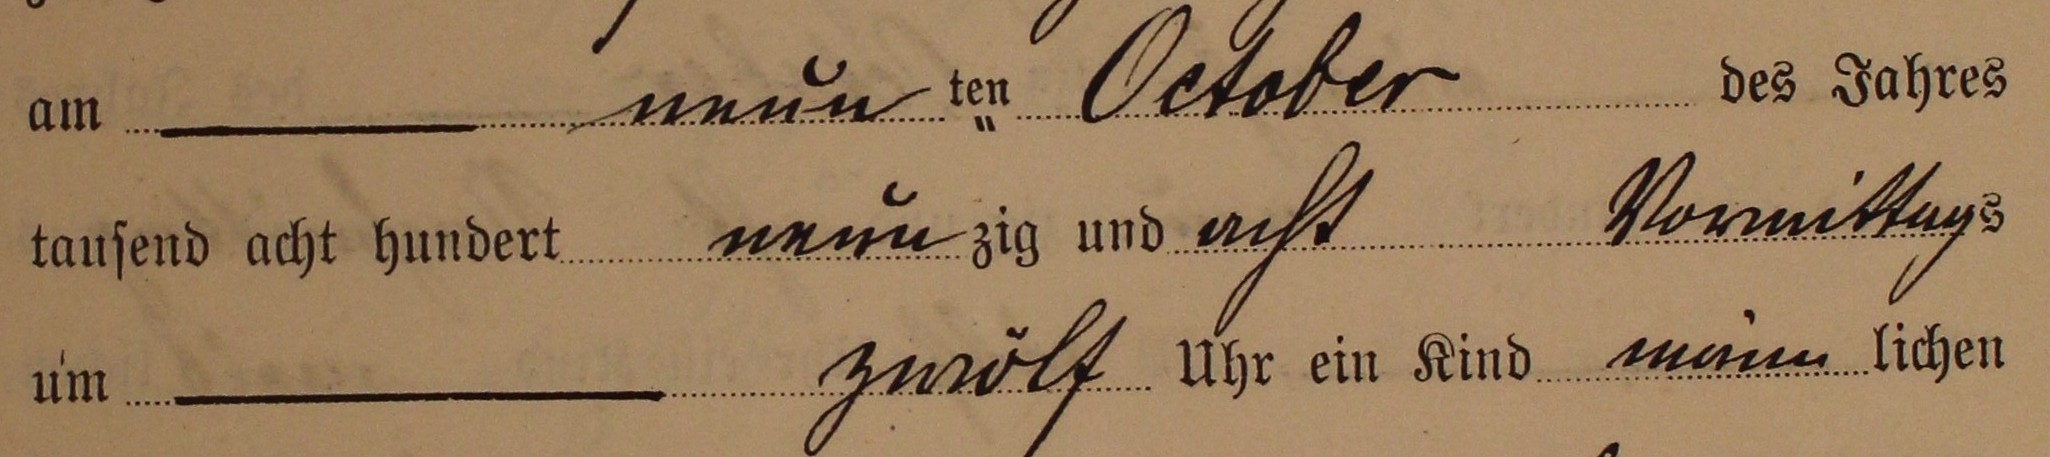 am neun ten October des Jahres
"
tausend acht hundert neun zig und acht Vormittags
um zwölf Uhr ein Kind männ lichen